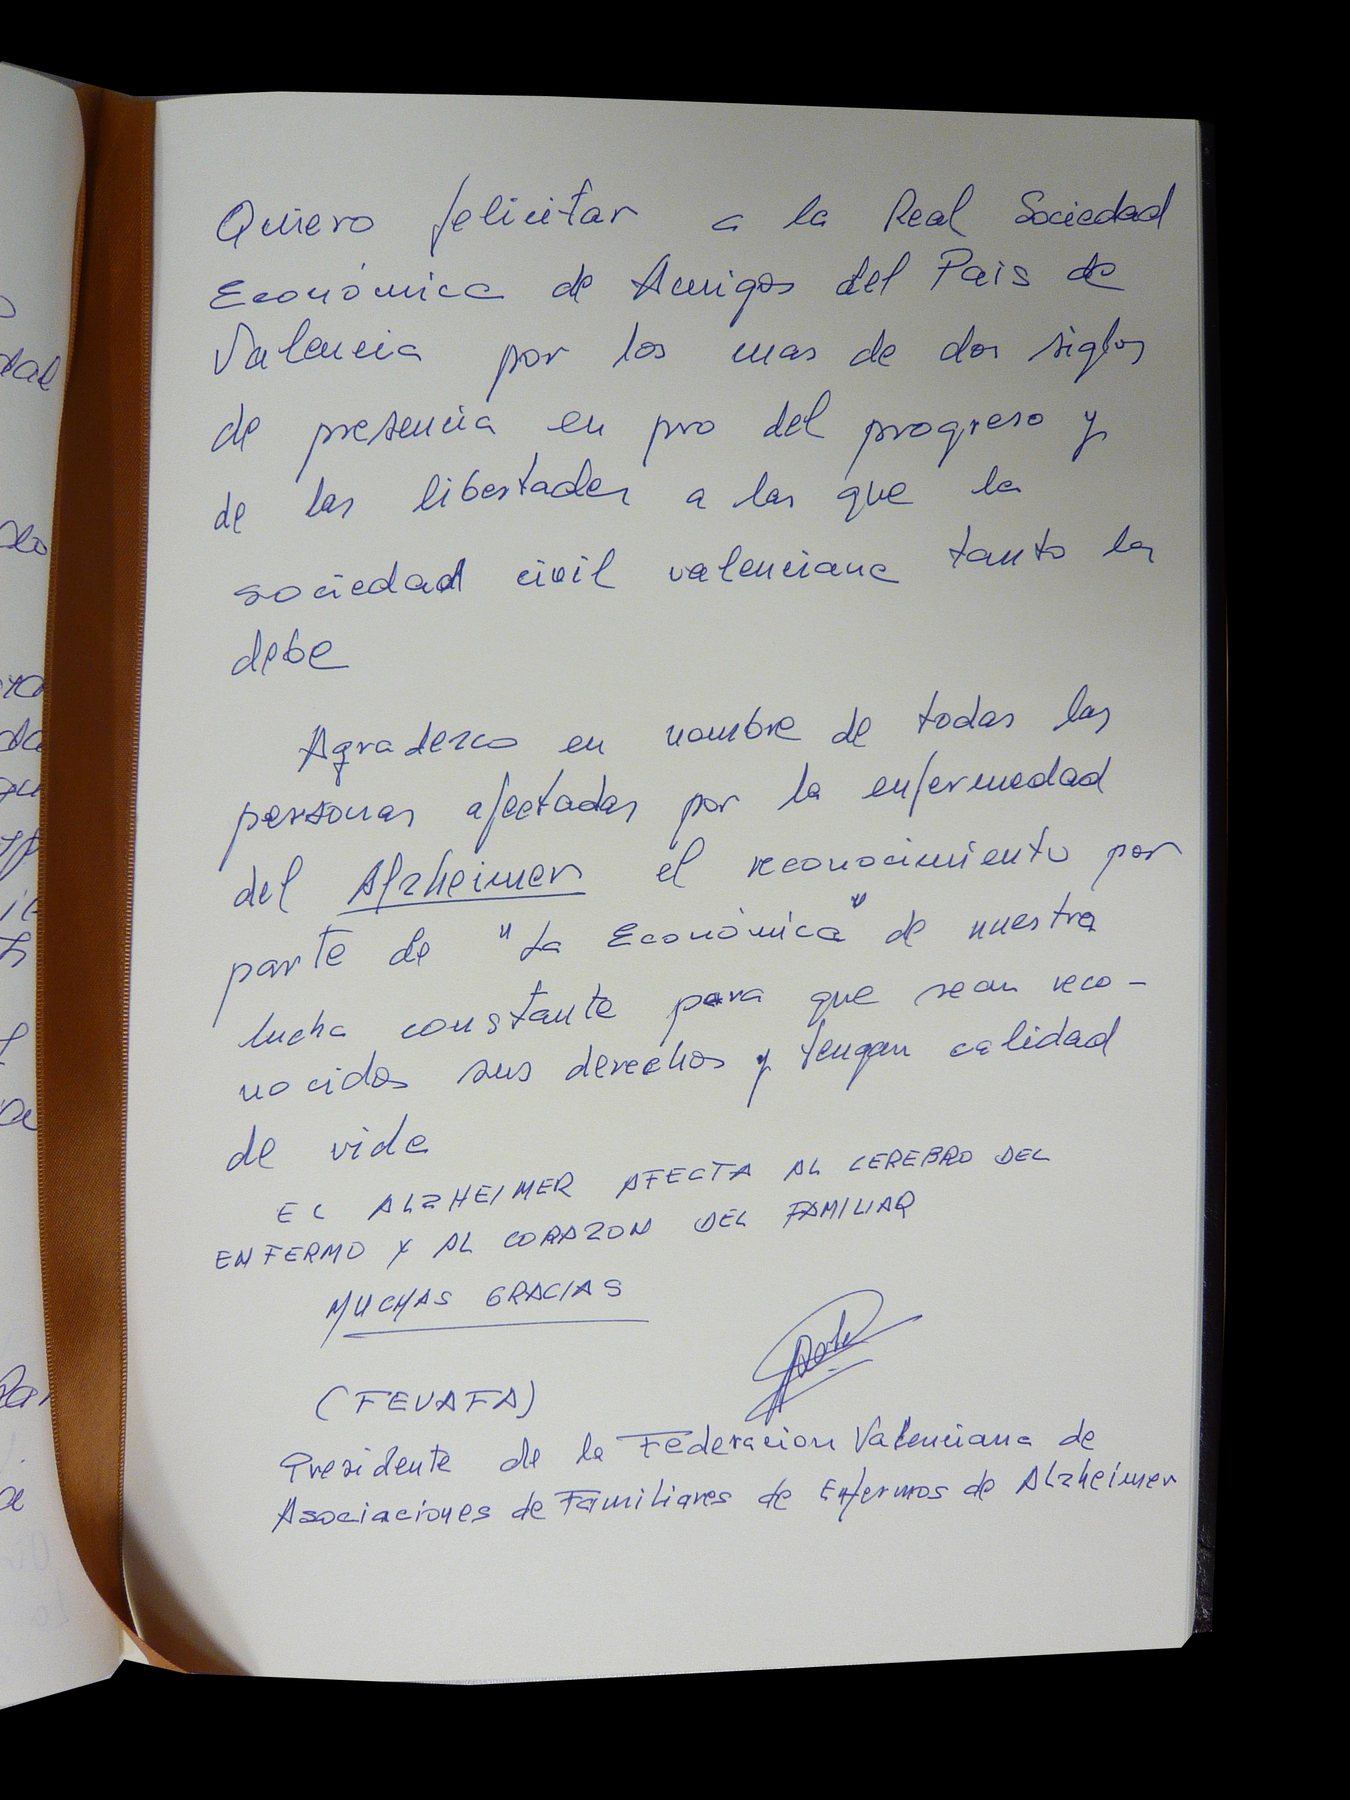 Quiero felicitar a la Real Sociedad
Económica de Amigos del Pais de
Valencia por los mas de dos siglos
de presencia en pro del progreso y
de las libertades a las que la
sociedad civil valenciana tanto la
debe
Agradezco en nombre de todas las
personas afectadas por la enfermedad
del Alzheimer el reconocimiento por
parte de "La Económica" de nuestra
lucha constante para que sean reco-
nocidos sus derechos y tengan calidad
de vida
EL ALZHEIMER AFECTA AL CEREBRO DEL
ENFERMO Y AL CORAZON DEL FAMILIAR
MUCHAS GRACIAS
(FEVAFA)
Presidente de la Federacion Valenciana de
Asociaciones de Familiares de Enfermos de Alzheimer